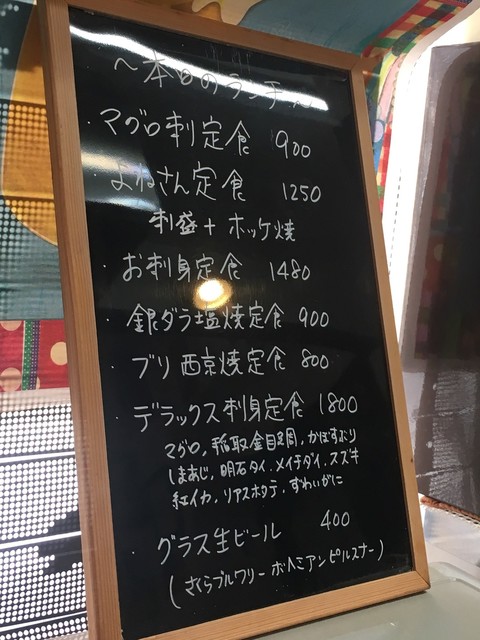 ～本日のランチ～
・マグロ刺定食 900
・よねさん定食 1250
刺盛＋ホッケ焼
・お刺身定食 1480
・銀ダラ塩焼定食 900
・ブリ西京焼定食 800
・デラックス刺身定食 1800
マグロ，稲取金目鯛，かぼすぶり
しまあじ，明石タイ，メイチダイ，スズキ
紅イカ，リアスホタテ，ずわいがに
・グラス生ビール 400
（さくらブルワリー ボヘミアンピルスナー）